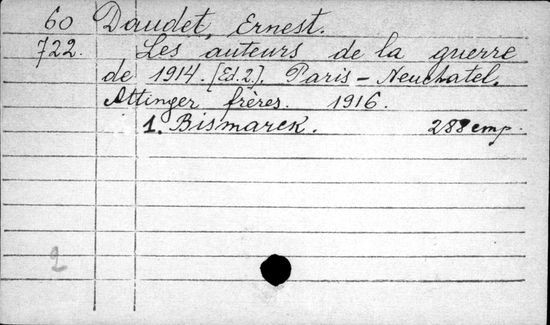 60 Daudet, Ernest.
722. Les auteurs de la guerre
de 1914. [Ed. 2]. Paris - Neuchatel.
Attinger frères. 1916.
1. Bismarck. 288 стр.
2